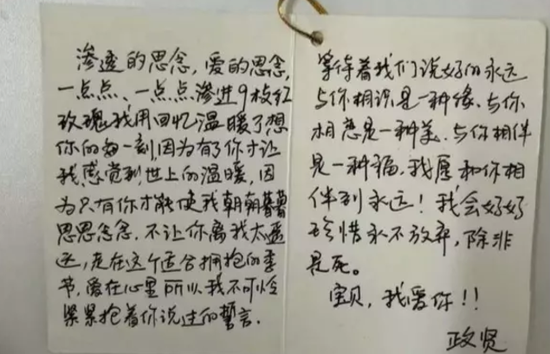 渗透的思念,爱的思念,
一点点、一点点渗进9枝红
玫瑰我用回忆温暖了想
你的每一刻,因为有了你才让
我感觉到世上的温暖,因
为只有你才能使我朝朝暮暮
思思念念.不让你离我太遥
远,走在这个适合拥抱的季
节,爱在心里所以我不可怜
紧紧抱着你说过的誓言.
等待着我们说好的永远
与你相识是一种缘、与你
相恋是一种美、与你相伴
是一种福,我愿和你相
伴到永远!我会好好
珍惜永不放弃,除非
是死。
宝贝,我爱你!!
政贤